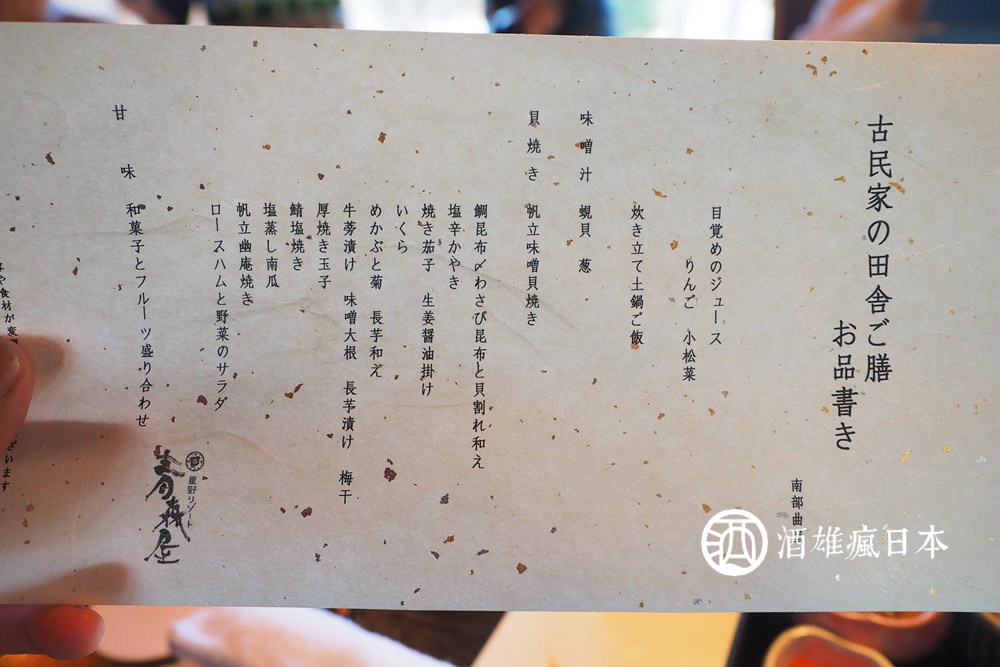 古民家の田舎ご膳
お品書き
南部曲
目覚めのジュース
りんご 小松菜
炊き立て土鍋ご飯
味噌汁 蜆貝 葱
貝焼き 帆立味噌貝焼き
鯛昆布〆わさび昆布と貝割れ和え
塩辛かやき
焼き茄子 生姜醤油掛け
いくら
めかぶと菊 長芋和え
牛蒡漬け 味噌大根 長芋漬け 梅干
厚焼き玉子
鯖塩焼き
塩蒸し南瓜
帆立幽庵焼き
ロースハムと野菜のサラダ
甘味 和菓子とフルーツ盛り合わせ
星野リゾート
青森屋
や食材が変
ざいます
酒雄瘋日本